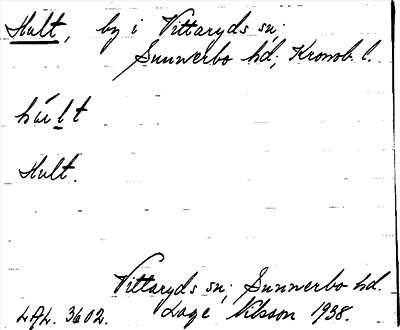 Hult, by i Vittaryds sn;
Sunnerbo hd; Kronob. l.
hu̇lt
Hult.
Vittaryds sn; Sunnerbo hd.
LAL. 3602. Nilsson 1938.